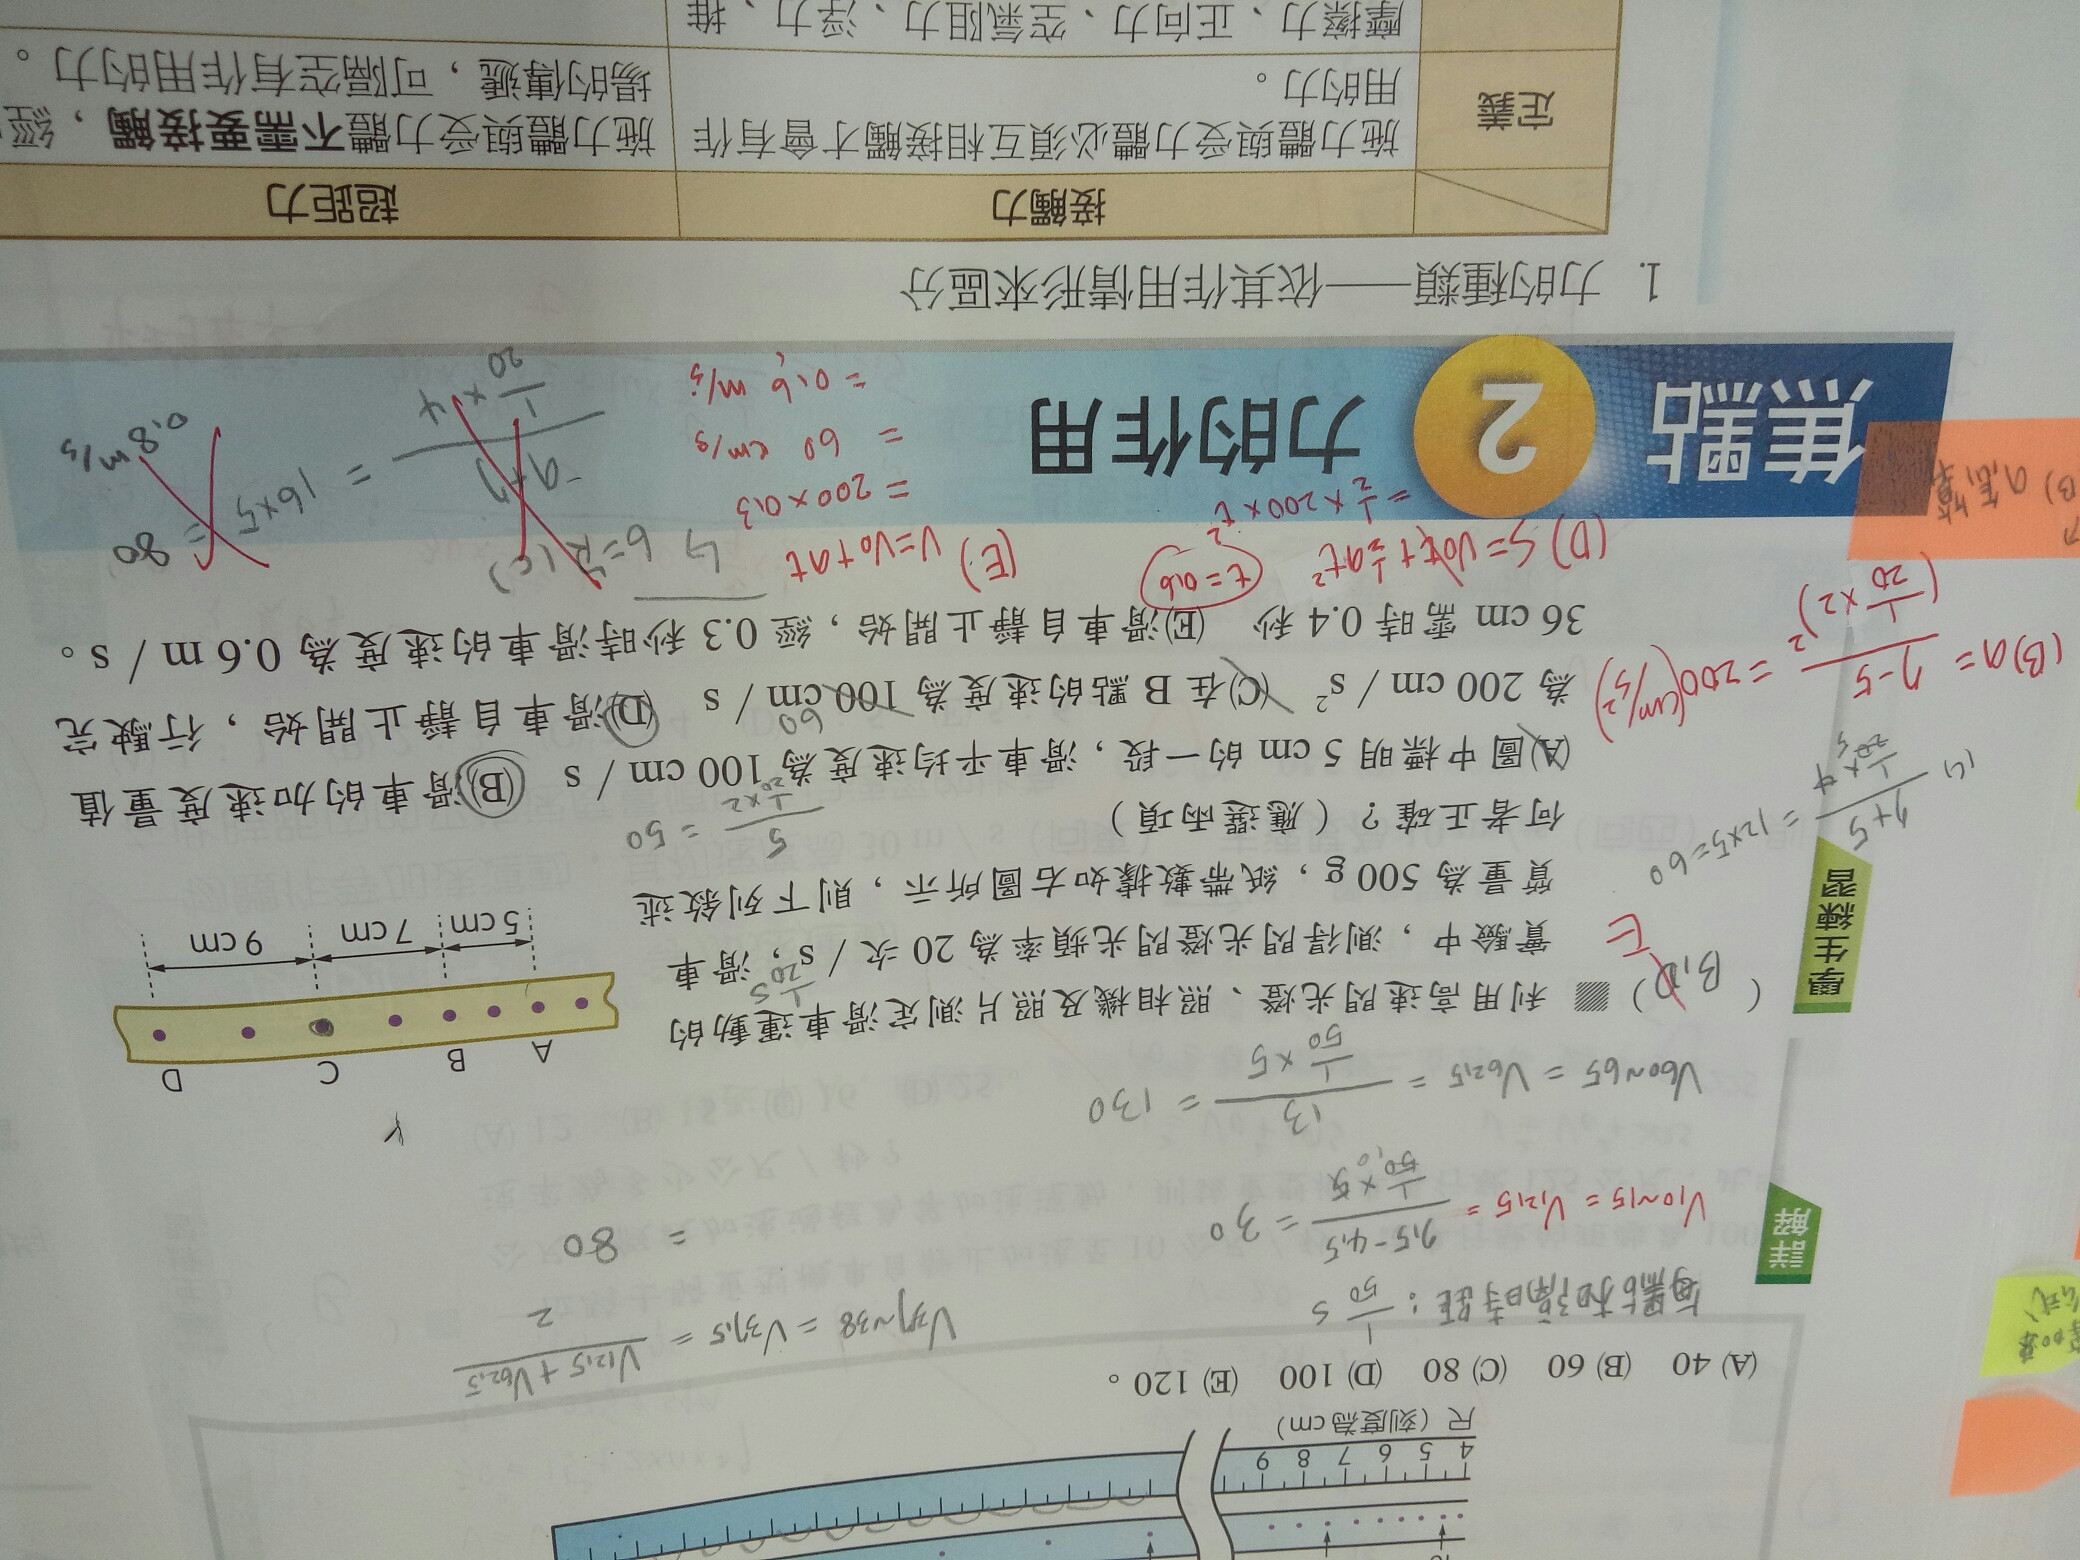 尺(刻度為 cm)
4 5 6 7 8 9
(A) 40 (B) 60 (C) 80 (D) 100 (E) 120。
詳解
每點相隔時距：1/50 s
V10~15 = V12.5 = (7.5-4.5)/ = 30
V60~65 = V62.5 = 13/(1/50 × 5) = 130
V37~38 = V37.5 = (V12.5 + V62.5)/2
= 80
學生練習
( B,D ) 利用高速閃光燈、照相機及照片測定滑車運動的
E
實驗中，測得閃光燈閃光頻率為 20 次 / s，滑車
1/20 s
質量為 500 g，紙帶數據如右圖所示，則下列敘述
何者正確？(應選兩項)
A B C D
5 cm 7 cm 9 cm
(A)圖中標明 5 cm 的一段，滑車平均速度為 100 cm / s (B)滑車的加速度量值
5/(1/20×2) = 50
為 200 cm / s² (C)在 B 點的速度為 100 cm / s (D)滑車自靜止開始，行駛完
60
36 cm 需時 0.4 秒 (E)滑車自靜止開始，經 0.3 秒時滑車的速度為 0.6 m / s。
(C) (7+5)/(1/20×4) = 12×5=60
(B) a = (7-5)/(1/20×2)² = 200(cm/s²)
(D) S=V0t+1/2at²
= 1/2×200×t²
t=0.6
(E) V=V0+at
=200×0.3
= 60 cm/s
= 0.6 m/s
1/20×4
= 16×5 = 80
0.8 m/s
焦點 2 力的作用
1. 力的種類——依其作用情形來區分
接觸力 超距力
定義
施力體與受力體必須互相接觸才會有作
用的力。
施力體與受力體不需要接觸，經
場的傳遞，可隔空有作用的力。
摩擦力、正向力、空氣阻力、浮力、推